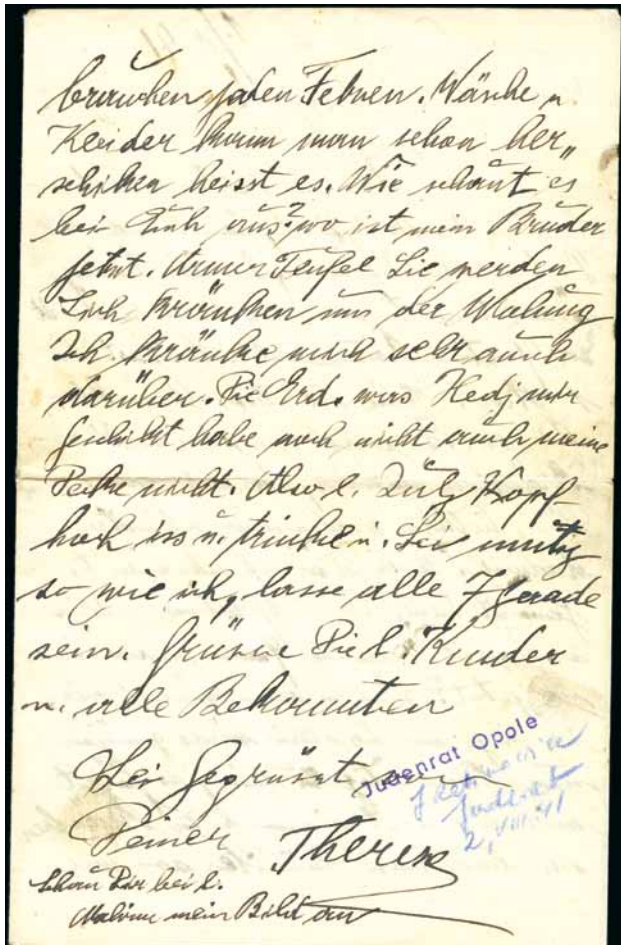 brauchen jeden Fetzen. Wäsche u
Kleider kann man schon her„
schiken heisst es. Wie schaut es
bei Euch aus? wo ist mein Bruder
jetzt. Armer Teufel Sie werden
Sich kränken um der Wohung
Ich kränke mich sehr auch
darüber. Die Erd. was Hedj mir
geschikt habe noch nicht auch meine
Deke nicht. Also l. Kopf
hoch iss u. trinke u. Sei mutig
so wie ich, lasse alle 7 gerade
sein. Grüsse Die l. Kinder
u. alle Bekannten
Sei Gegrüsst von
Deiner Therese
Judenrat Opole
Judenrat
2, VIII. 41
Schau Dir bei l.
Malvine mein Bild an